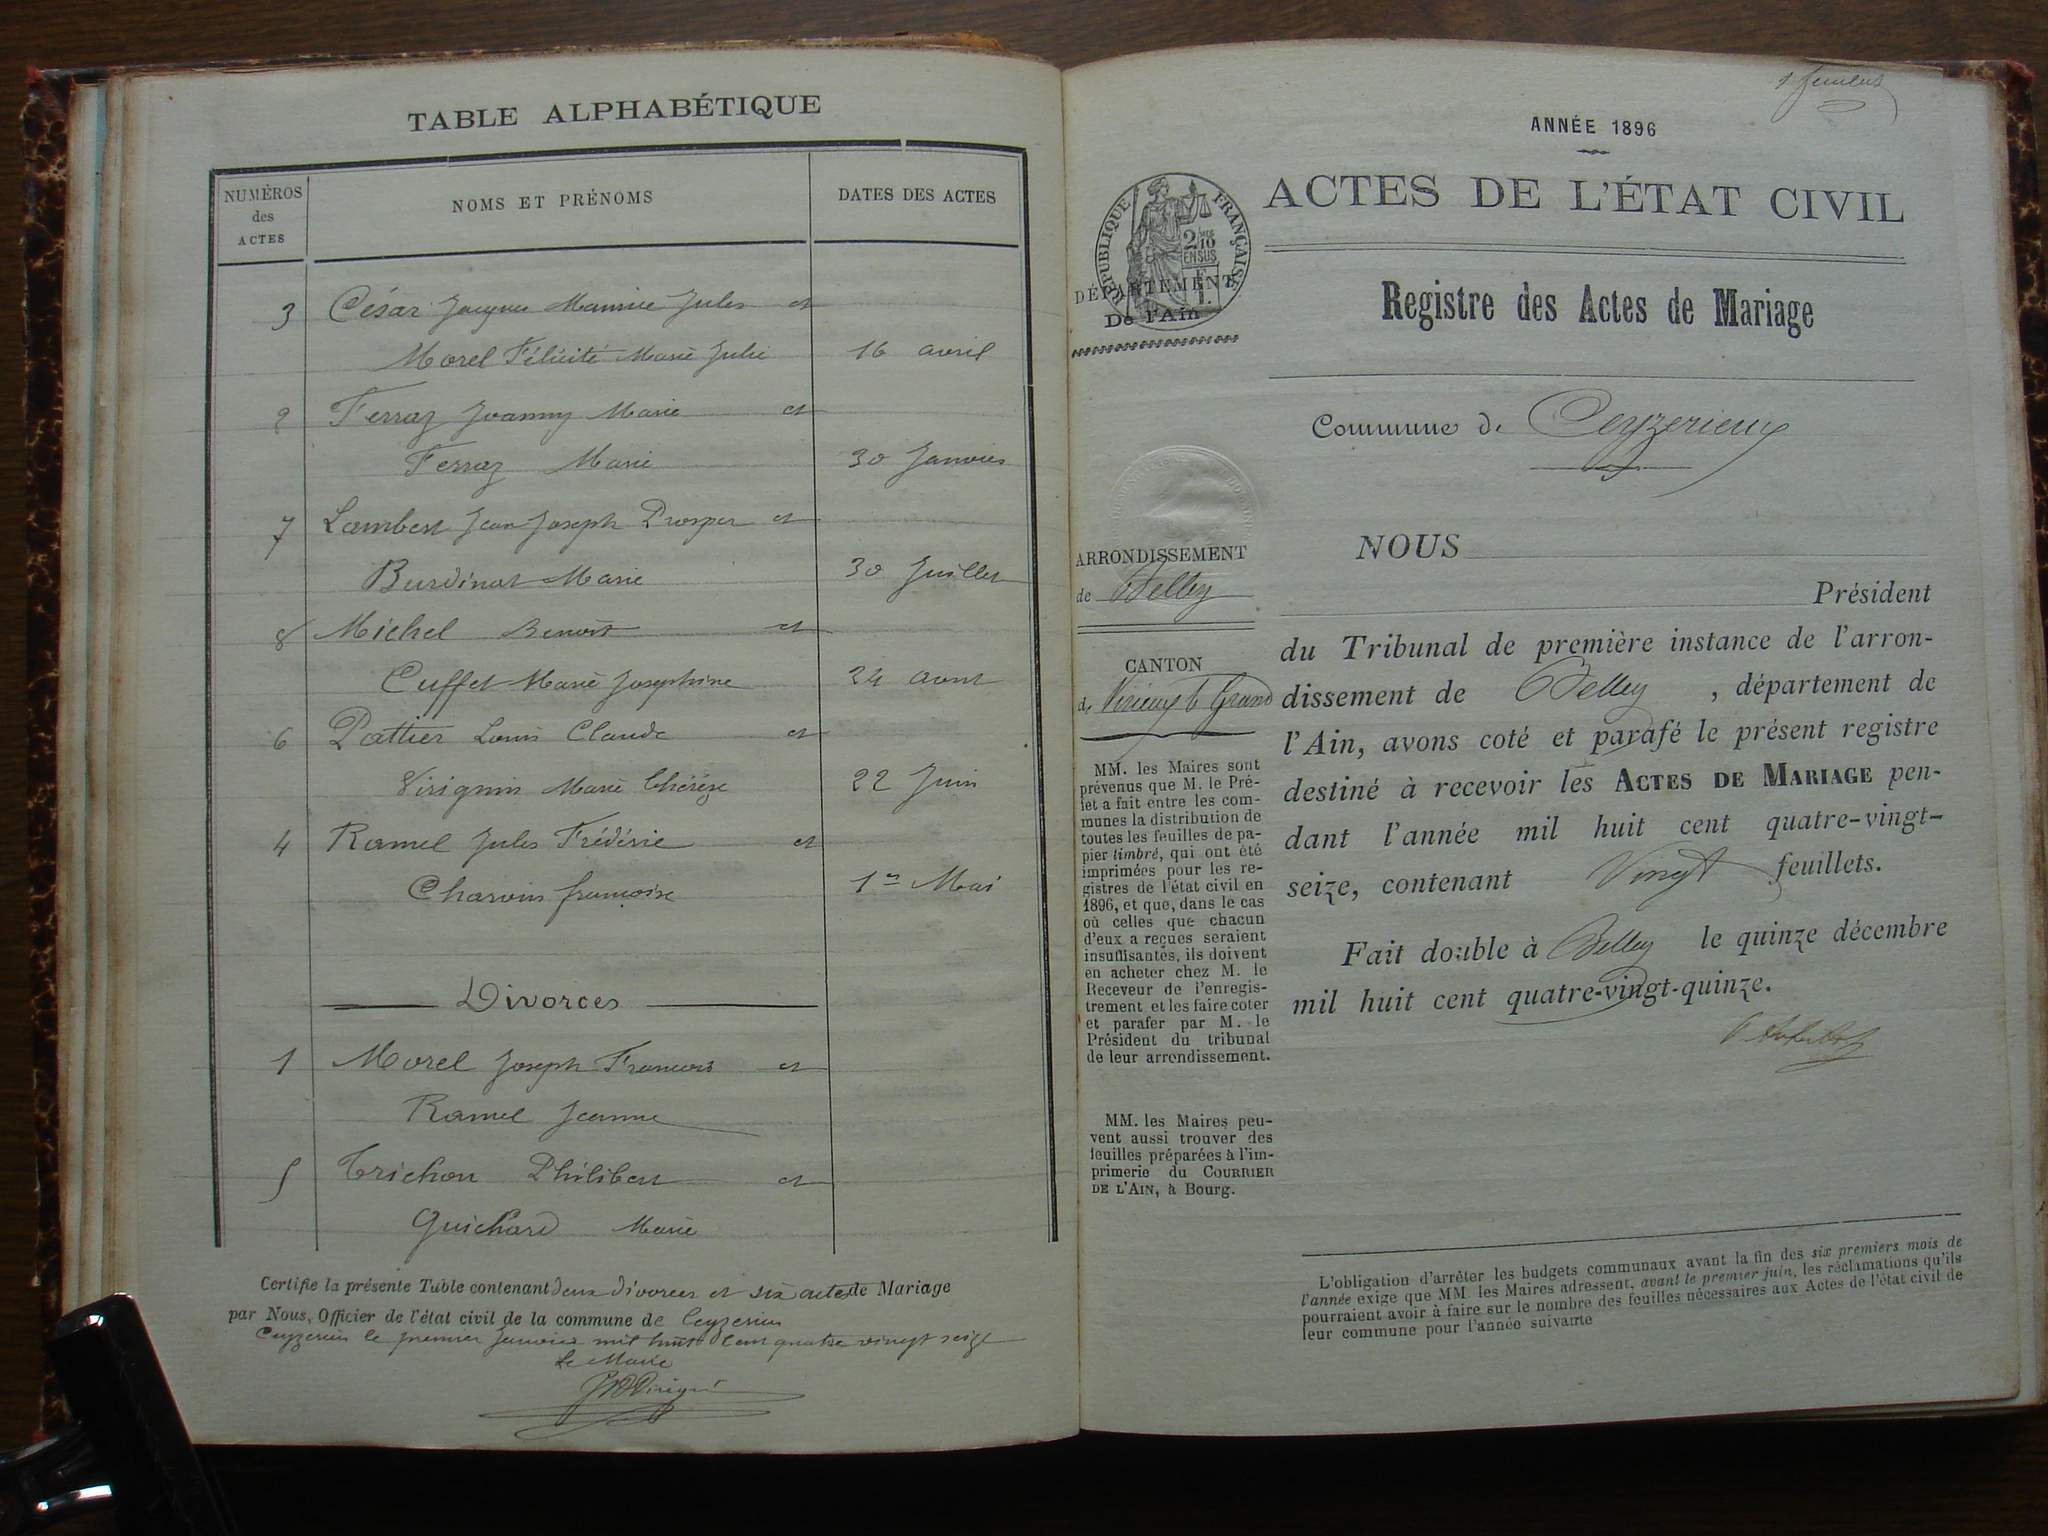 TABLE ALPHABÉTIQUE
NUMÉROS des ACTES
NOMS ET PRÉNOMS
DATES DES ACTES
3 César Jacques Maurice Jules et
Morel Félicité Marie Julie 16 avril
2 Ferraz Joanny Marie et
Ferraz Marie 30 Janvier
7 Lambert Jean Joseph Prosper et
Burdinat Marie 30 Juillet
8 Michel Benoit et
Cuffet Marie Josephine 24 aout
6 Pattier Louis Claude et
Virignin Marie Thérèze 22 Juin
4 Ramel Jules Fréderic et
Charvin françoise 1er Mai
Divorces
1 Morel Joseph Francois et
Ramel Jeanne
5 Trichon Philibert et
Guichard Marie
Certifie la présente Table contenant deux divorces et six actes de Mariage
par Nous, Officier de l'état civil de la commune de Ceyzerieu
Ceyzerieu le premier Janvier mil huit cent quatre vingt seize
Le Maire
1 feuillet
ANNÉE 1896
ACTES DE L'ÉTAT CIVIL
RÉPUBLIQUE FRANÇAISE
2/10 EN SUS
DÉPARTEMENT
De l'Ain
Registre des Actes de Mariage
Commune de Ceyzerieux
ARRONDISSEMENT
de Belley
CANTON
de Virieux le Grand
MM. les Maires sont
prévenus que M. le Pré-
fet a fait entre les com-
munes la distribution de
toutes les feuilles de pa-
pier timbré, qui ont été
imprimées pour les re-
gistres de l'état civil en
1896, et que, dans le cas
où celles que chacun
d'eux a reçues seraient
insuffisantes, ils doivent
en acheter chez M. le
Receveur de l'enregis-
trement et les faire coter
et parafer par M. le
Président du tribunal
de leur arrondissement.
MM. les Maires peu-
vent aussi trouver des
feuilles préparées à l'im-
primerie du COURRIER
DE L'AIN, à Bourg.
NOUS
Président
du Tribunal de première instance de l'arron-
dissement de Belley, département de
l'Ain, avons coté et parafé le présent registre
destiné à recevoir les ACTES DE MARIAGE pen-
dant l'année mil huit cent quatre-vingt-
seize, contenant Vingt feuillets.
Fait double à Belley le quinze décembre
mil huit cent quatre-vingt-quinze.
L'obligation d'arrêter les budgets communaux avant la fin des six premiers mois de
l'année exige que MM. les Maires adressent, avant le premier juin, les réclamations qu'ils
pourraient avoir à faire sur le nombre des feuilles nécessaires aux Actes de l'état civil de
leur commune pour l'année suivante